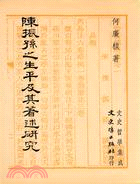 何廣棪著
陳振孫之生平及其著述研究
文史哲學集成
文史哲出版社印行